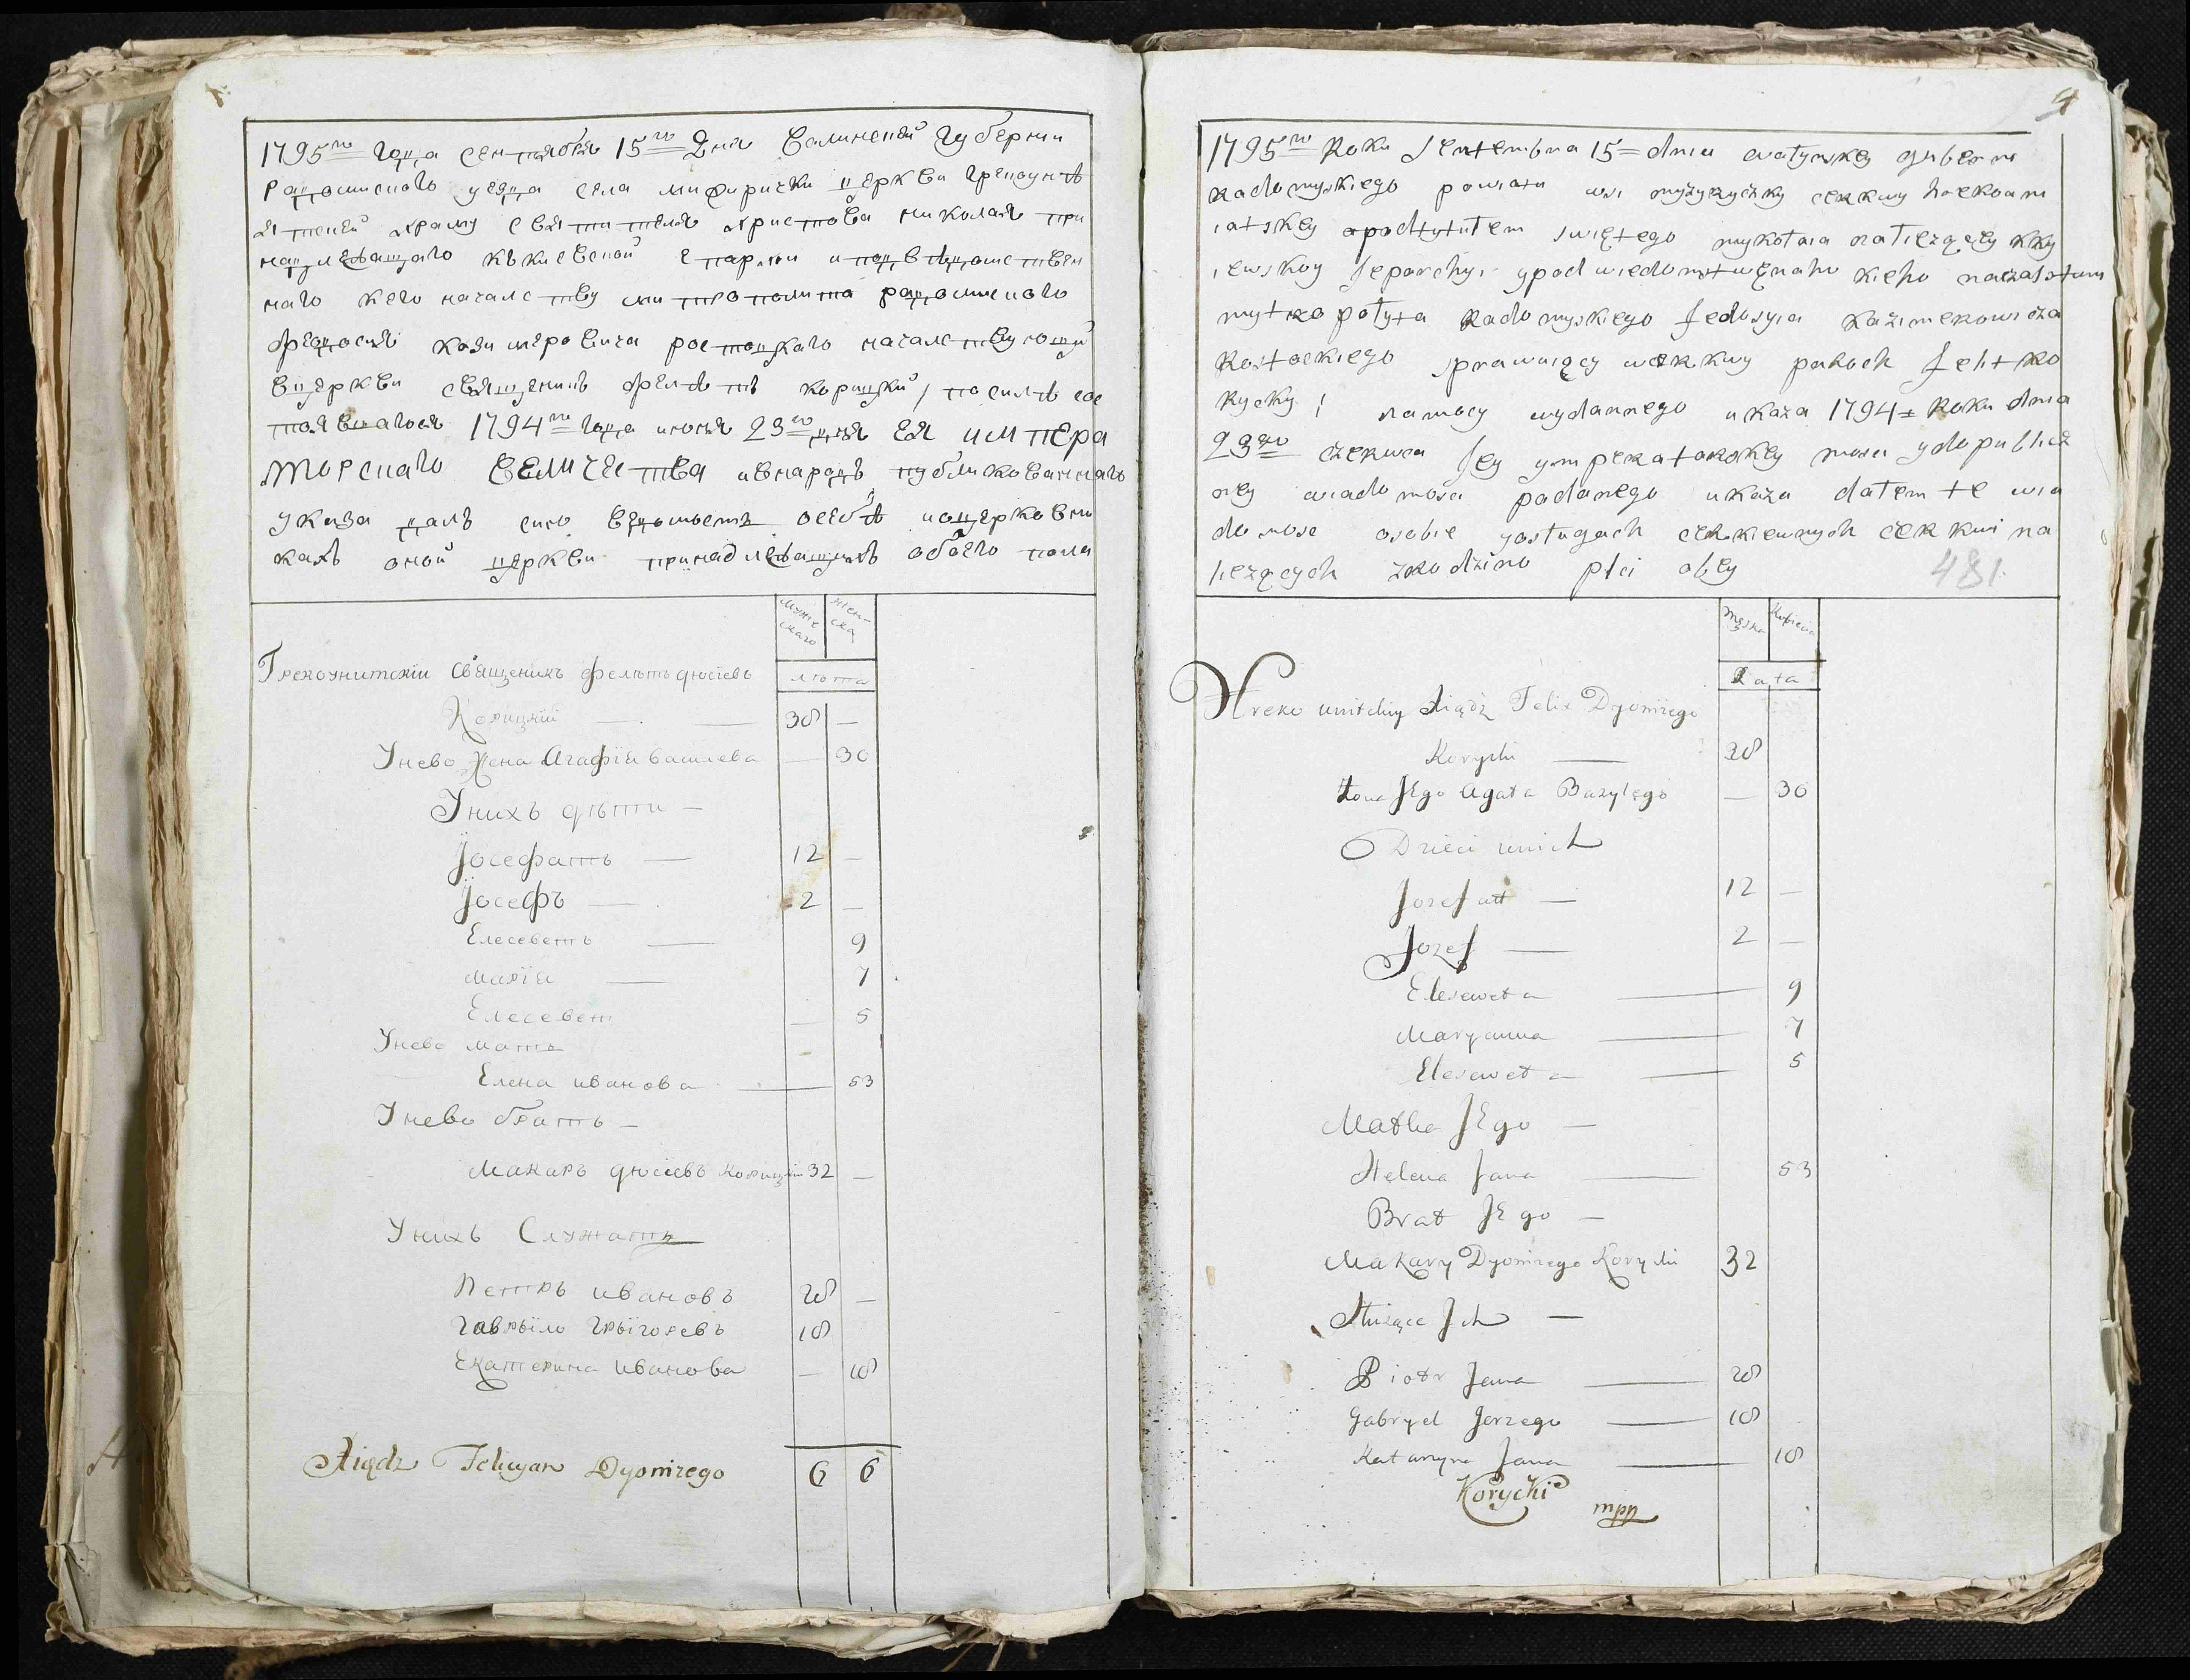 1795го года сентября 15го дня волынской губернии
радомиского уезда села мижирички церкви греноунѣ
ятской храму святителя христова николая при
надлежащаго къ киевской епархии и под вѣдомствен
наго к его началству митрополита радомиского
феодосия казимеровича ростоцкаго началствующи
в церкви священикъ фелѣтъ корицки / по силѣ сос
тоявшагося 1794го года июня 23го дня ея импера
торскаго величества и внародъ публикованнаго
указа далъ сию ведомость о себѣ и о церковни
кахъ оной церкви принадлежащихъ обоего пола
мужескаго
женска
Грекоунитскіи священикъ фелѣтъ дюсіевъ
лѣта
Корицкій — — 38 —
Унево жена Агафія васілева — 30
Унихъ дѣти —
Іосефатъ — 12 —
Іосефъ — 2 —
Елесеветъ — 9
марія — 7
Елесевет — 5
Унево мать
Елена иванова — 53
Унево братъ —
Макаръ дюсіевъ корицкій 32 —
Унихъ Служатъ
Петръ ивановъ 28 —
гаврыіло грыігоревъ 18
Екатерина иванова — 18
Xiądz Felicyan Dyonizego 6 6
4
1795го Roku Septembra 15= dnia wołynskey guberni
Radomyskiego powiatu wsi myżyryczky cerkwy hrekoun
iatskey apodtytułem swiętego mykołaia należącey kky
iewskoy Jeparchyi ypod wiedomstwęnaho kieho naczalstwu
mytropołyta Radomyskiego fedosyia Kazimerowicza
Rostockiego sprawuiący wcerkwy paroch feltko
rycky / namocy wydannego ukaza 1794= Roku dnia
23го czerwca Jey ymperatorskey mosci ydopublicz
ney wiadomosci podanego ukaza datem te wia
domosc osobie yosługach cerkiewnych cerkwi na
lezących zrodzino płci obey
481.
męska
kobieca
Hreko unitckiy Xiądz Felix Dyonizego
Lata
Korycki — 38
Zona Jego Agata Bazylego — 30
Dzieci unich
Jozefatt — 12 —
Jozef — 2 —
Eleseweta — 9
Maryanna — 7
Eleseweta — 5
Matka Jego —
Helena Jana — 53
Brat Jego —
Makary Dyonizego Korycki 32
Służące Jch —
Piotr Jana — 28
Gabryel Jerzego — 18
Katarzyna Jana — 18
Korycki
mpp